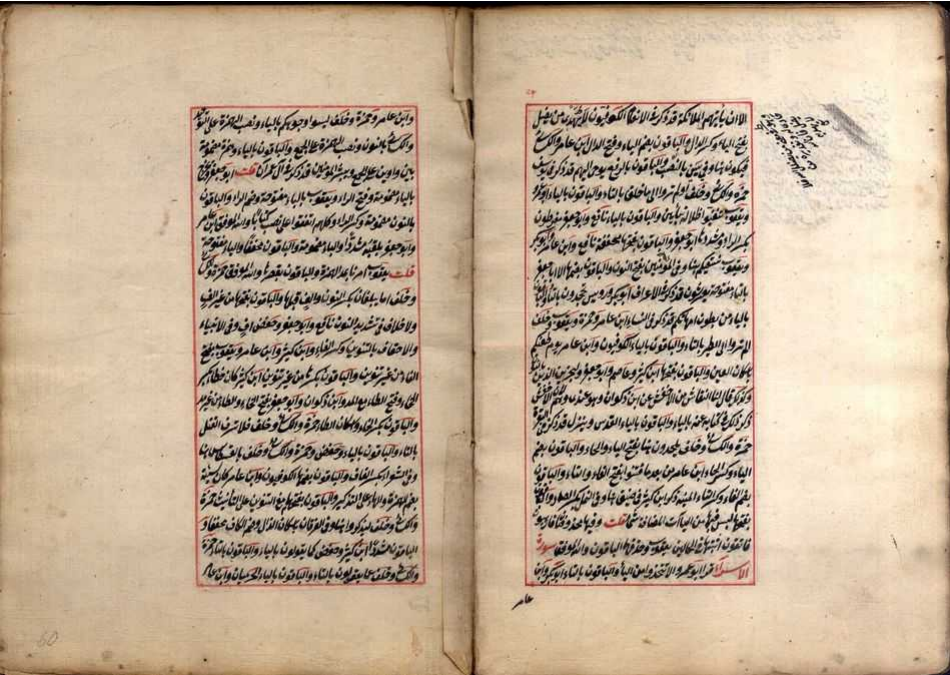 الا ان يأتيهم الملائكة قد ذكر في الانعام الكوفيون لا يهدي من يضل
بفتح الياء وكسر الدال والباقون بضم الياء وفتح الدال ابن عامر والكسائي
فيكون هنا وفي يس بالنصب والباقون بالرفع يوحى اليهم قد ذكر في يوسف
حمزة والكسائي وخلف اولم تروا الى ما خلق بالتاء والباقون بالياء ابو عمرو
ويعقوب تتفيؤا ظلاله بتاءين والباقون بالياء نافع وابو جعفر مفرطون
بكسر الراء وشددها ابو جعفر والباقون بفتحها مخففة نافع وابن عامر وابو بكر
ويعقوب نسقيكم هنا وفي المؤمنين بفتح النون والباقون بضمها الا ابا جعفر
بالتاء مفتوحة يعرشون قد ذكر في الاعراف ابو بكر ورويس تجحدون بالتاء والباقون
بالياء من بطون امهاتكم قد ذكر في النساء ابن عامر وحمزة ويعقوب وخلف
الم تروا الى الطير بالتاء والباقون بالياء الكوفيون وابن عامر يوم ظعنكم
باسكان العين والباقون بفتحها ابن كثير وعاصم وابو جعفر ولنجزين الذين بالنون
وكذلك قال النقاش عن الاخفش عن ابن ذكوان وهو عندي وهم لان الاخفش
ذكر ذلك في كتابه عنه بالياء والباقون بالياء القدس وينزل قد ذكر في البقرة
حمزة والكسائي وخلف يلحدون هنا بفتح الياء والحاء والباقون بضم
الياء وكسر الحاء ابن عامر من بعد ما فتنوا بفتح الفاء والتاء والباقون
بضم الفاء وكسر التاء الميتة ذكر ابن كثير في ضيق هنا وفي النمل بكسر الضاد والباقون
بفتحها ليس فيها من الياآت المضافة شيء قلت وفيها محذوفتان
فارهبون اثبتها في الحالين يعقوب وحذفها الباقون والله الموفق سورة
الاسراء قرأ ابو عمرو الا يتخذوا من الياء والباقون بالتاء ابو بكر وابن
عامر
وابن عامر وحمزة وخلف ليسوء وجوهكم بالياء ونصب الهمزة على التوحيد
والكسائي بالنون ونصب الهمزة على الجمع والباقون بالياء وهمزة مضمومة
بين واوين على الجمع ويبشر المؤمنين قد ذكر في آل عمران قلت ابو جعفر ويخرج
بالياء مضمومة وفتح الراء ويعقوب بالياء مفتوحة وضم الراء والباقون
بالنون مضمومة وكسر الراء وكلهم اتفقوا على نصب كتابا والله الموفق ابن عامر
وابو جعفر يلقيه مشددا والياء مضمومة والباقون مخففا والياء مفتوحة
قلت يعقوب آمرنا بمد الهمزة والباقون بقصرها والله الموفق حمزة والكسائي
وخلف اما يبلغان بكسر النون والف قبلها والباقون بفتحها من غير الف
ولا خلاف في تشديد النون نافع وابو جعفر وحفص اف وفي الانبياء
والاحقاف بالتنوين وكسر الفاء وابن كثير وابن عامر ويعقوب بفتح
الفاء من غير تنوين والباقون بكسرها من غير تنوين ابن كثير كان خطاء بكسر
الخاء وفتح الطاء مع المد وابن ذكوان وابو جعفر بفتح الخاء والطاء من غير مد
والباقون بكسر الخاء واسكان الطاء حمزة والكسائي وخلف فلا تسرف في القتل
بالتاء والباقون بالياء وحفص وحمزة والكسائي وخلف بالقسطاس هنا
وفي الشعراء بكسر القاف والباقون بضمها الكوفيون وابن عامر كان سيئه
بضم الهمزة والهاء على التذكير والباقون بفتحها مع التنوين على التأنيث حمزة
والكسائي وخلف ليذكروا هنا وفي الفرقان باسكان الذال وضم الكاف مخففا و
الباقون مشددا ابن كثير وحفص كما يقولون بالياء والباقون بالتاء حمزة
والكسائي وخلف عما تقولون بالتاء والباقون بالياء الحرميان وابن عامر
60